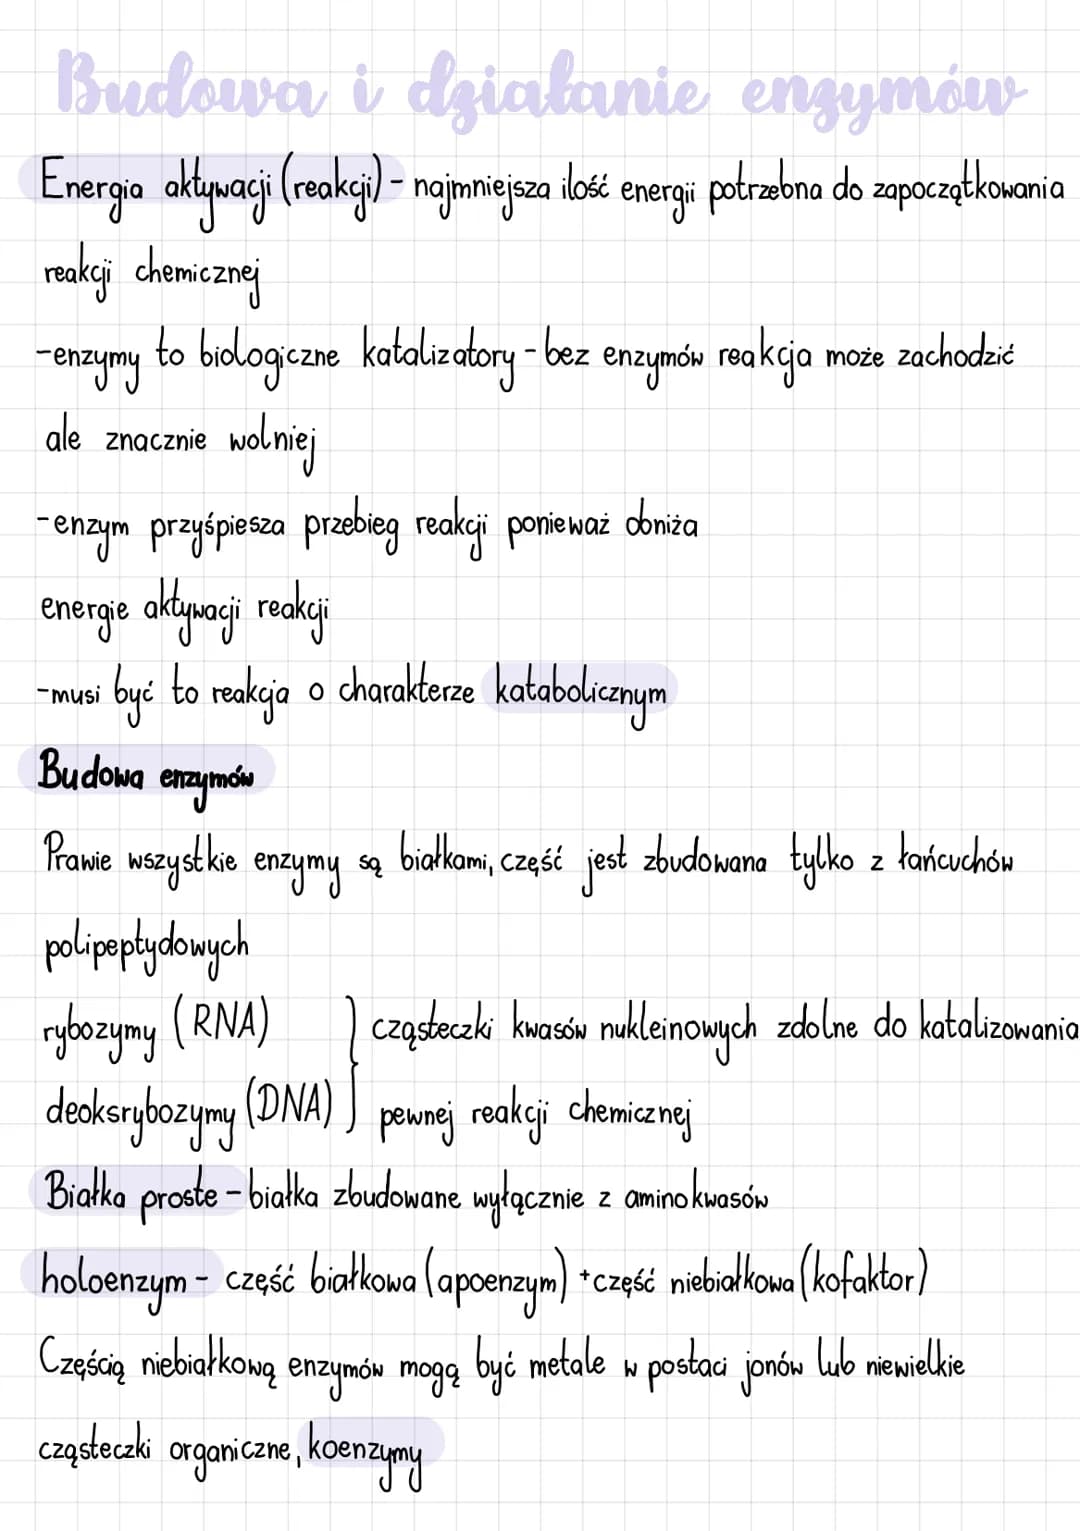 Budowa i działanie enzymów
Energia aktywacji (reakcji) - najmniejsza ilość energii potrzebna do zapoczątkowania
reakcji chemicznej
-enzymy to biologiczne katalizatory - bez enzymów reakcja może zachodzić
ale znacznie wolniej
-enzym przyśpiesza przebieg reakcji ponieważ obniża
energie aktywacji reakcji
-musi być to reakcja o charakterze katabolicznym
Budowa enzymów
Prawie wszystkie enzymy są białkami, część jest zbudowana tylko z łańcuchów
polipeptydowych
rybozymy (RNA) } cząsteczki kwasów nukleinowych zdolne do katalizowania
deoksrybozymy (DNA) } pewnej reakcji chemicznej
Białka proste - białka zbudowane wyłącznie z aminokwasów
holoenzym - część białkowa (apoenzym) + część niebiałkowa (kofaktor)
Częścią niebiałkową enzymów mogą być metale w postaci jonów lub niewielkie
cząsteczki organiczne, koenzymy